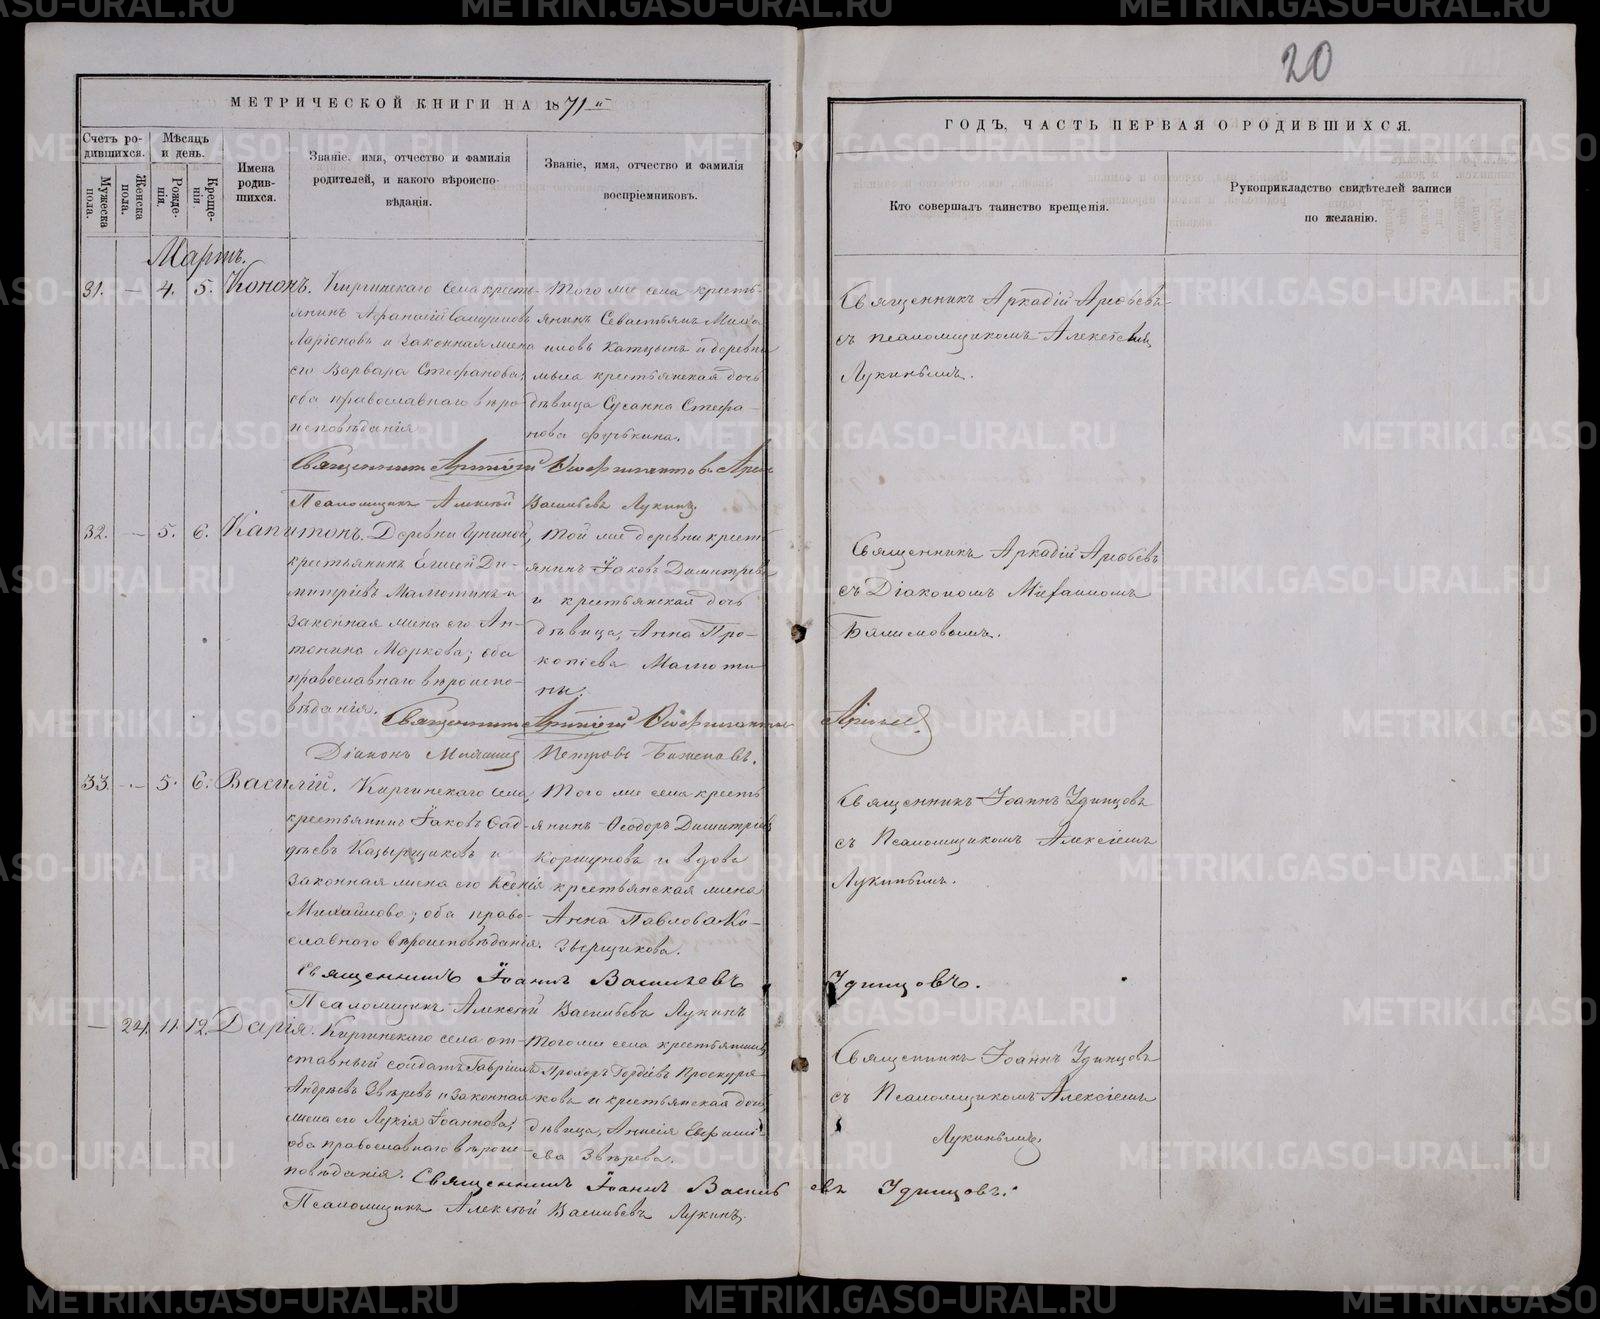 20
МЕТРИЧЕСКОЙ КНИГИ НА 1871й
ГОДЪ, ЧАСТЬ ПЕРВАЯ О РОДИВШИХСЯ.
Счетъ родившихся.
Мужеска пола.
Женска пола.
Мѣсяцъ и день.
Рожденія.
Крещенія
Имена родившихся.
Званіе, имя, отчество и фамилія
родителей, и какого вѣроиспо-
вѣдания.
Званіе, имя, отчество и фамилія
воспріемниковъ.
Кто совершалъ таинство крещенія.
Рукоприкладство свидѣтелей записи
по желанію.
Мартъ.
31. — 4. 5. Кононъ.
Киргинскаго села кресть-
янинъ Афанасій
Ларіоновъ и законная жена
его Варвара Стефанова;
оба православнаго вѣро
исповѣданія
Того же села кресть-
янинъ Севастьянъ
и деревни
крестьянская дочь
дѣвица Сусанна Стефа-
нова
Священникъ Аркадій Арефьевъ
съ псаломщикомъ Алексіемъ
Лукинымъ.
Священникъ Аркадій
Псаломщикъ Алексѣй Васильевъ Лукинъ
32. — 5. 6. Капитонъ.
Деревни
крестьянинъ Елисей Ди-
митріевъ Мамотинъ и
законная жена его Ан-
тонина Маркова; оба
православнаго вѣроиспо-
вѣданія.
Той же деревни кресть
янинъ Іаковъ Димитріевъ
и крестьянская дочь
дѣвица, Анна Про-
копіева Мамоти
ны.
Священникъ Аркадій Арефьевъ
съ Діакономъ
Священникъ Аркадій
Діаконъ Петровъ
33. — 5. 6. Василій.
Киргинскаго села,
крестьянинъ Іаковъ Фад-
дѣевъ и
законная жена его Ксенія
Михайлова; оба право-
славнаго вѣроисповѣданія.
Того же села кресть
янинъ Ѳеодоръ Димитріевъ
Коршуновъ и вдова
крестьянская жена
Анна Павлова Ко-
зырщикова.
Священникъ Іоаннъ Удинцовъ
съ Псаломщикомъ Алексіемъ
Лукинымъ.
Священникъ Іоаннъ Васильевъ Удинцовъ.
Псаломщикъ Алексѣй Васильевъ Лукинъ
— 24. 11. 12. Дарія.
Киргинскаго села от-
ставный солдатъ Гавріилъ
Андреевъ Звѣревъ и законная
жена его Лукія Іоаннова;
оба православнаго вѣроис-
повѣданія.
Того же села крестьянинъ
Прохоръ Гордіевъ Проскуря-
ковъ и крестьянская дочь
дѣвица, Анисія
ева Звѣрева.
Священникъ Іоаннъ Удинцовъ
съ Псаломщикомъ Алексіемъ
Лукинымъ
Священникъ Іоаннъ Васильевъ Удинцовъ.
Псаломщикъ Алексѣй Васильевъ Лукинъ.
METRIKI.GASO-URAL.RU